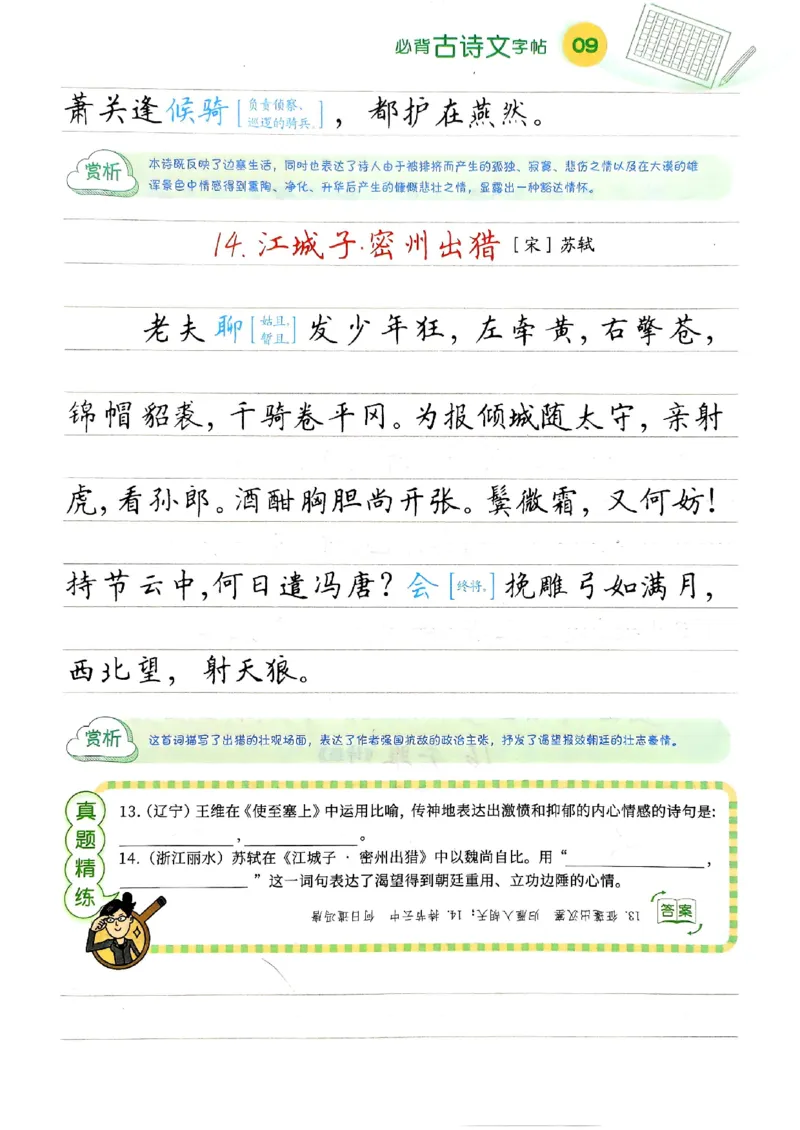 必背古诗文字帖 09
萧关逢候骑[负责侦察、巡逻的骑兵。]，都护在燕然。
赏析 本诗既反映了边塞生活，同时也表达了诗人由于被排挤而产生的孤独、寂寞、悲伤之情以及在大漠的雄
浑景色中情感得到熏陶、净化、升华后产生的慷慨悲壮之情，显露出一种豁达情怀。
14.江城子·密州出猎［宋］苏轼
老夫聊[姑且，暂且。]发少年狂，左牵黄，右擎苍，
锦帽貂裘，千骑卷平冈。为报倾城随太守，亲射
虎，看孙郎。酒酣胸胆尚开张。鬓微霜，又何妨！
持节云中，何日遣冯唐？会[终将。]挽雕弓如满月，
西北望，射天狼。
赏析 这首词描写了出猎的壮观场面，表达了作者强国抗敌的政治主张，抒发了渴望报效朝廷的壮志豪情。
真题精练
13.（辽宁）王维在《使至塞上》中运用比喻，传神地表达出激愤和抑郁的内心情感的诗句是：
，。
14.（浙江丽水）苏轼在《江城子 · 密州出猎》中以魏尚自比。用“，
”这一词句表达了渴望得到朝廷重用、立功边陲的心情。
答案 13. 征蓬出汉塞 归雁入胡天；14. 持节云中 何日遣冯唐